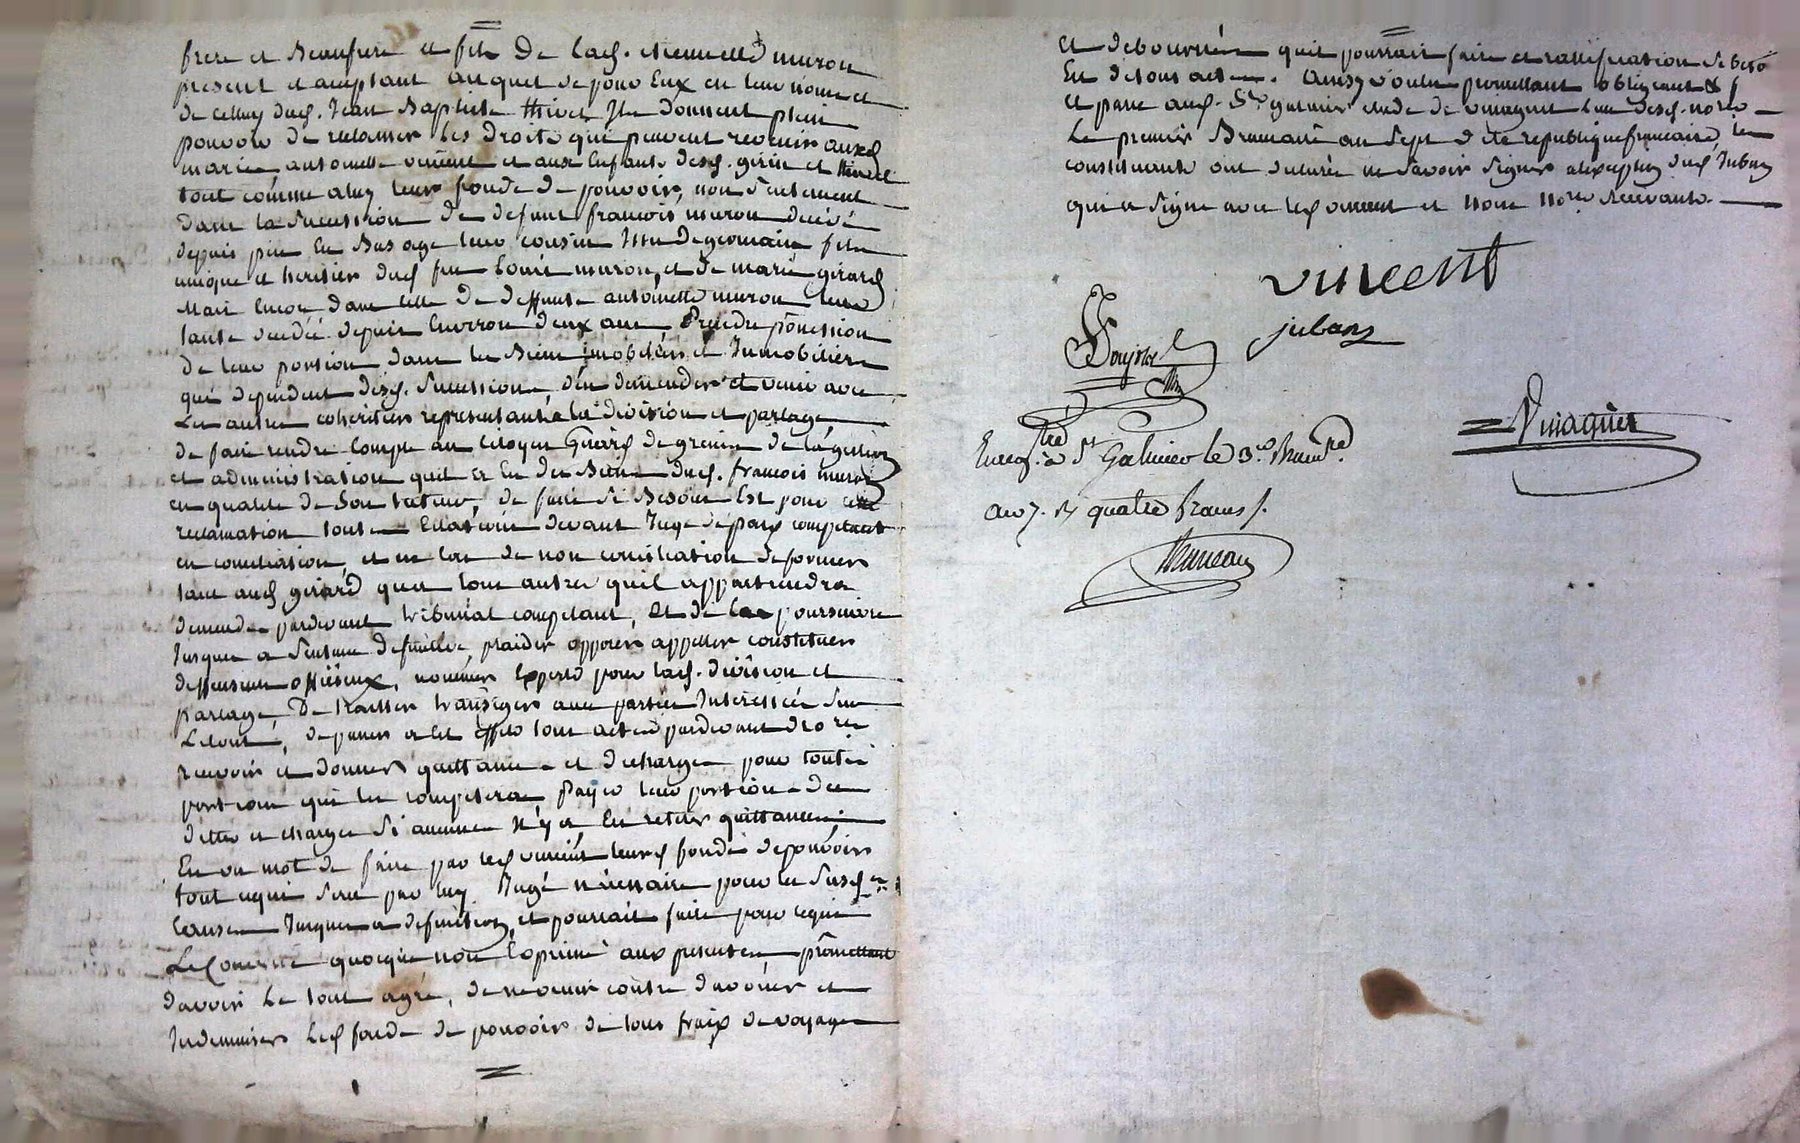 frere et Beaufrere et fils De lad. etiennette muron
present et aceptant auquel de pour Eux en leur nom et
de celluy dud. Jean Baptiste thivet Ils donnent plein
pouvoir de reclamer les droits qui peuvent revenir auxd
mariés, antoinette vincent et aux Enfants desd. girin et thivet
tout comme a luy leur fondé de pouvoir, non seulement
dans la succession de defunt francois muron decédé
depuis peu En Bas age leur cousin Issu de germain fils
unique et heritier dud feu Louis muron, et de marie girard
Mais Encor dans celle de deffunte antoinette muron leur
tante decedéé depuis Environ deux ans, Prendre possession
de leur portion dans les Biens mobiliers et Immobiliers
qui dependent desd. successions, d'en demander et venir avec
Les autres coheritiers representants a la division et partage
de faire rendre compte au Citoyen Girard de grenien de la gestion
et administration quil a Eu des Biens dud. francois muron
en qualité de son tuteur, de faire si Besoin Est pour cette
reclamation toutes Citations devant Juge de paix competant
en conciliation, et en cas de non conciliation de former
tant aud girard qua tous autres quil appartiendra
demandes pardevant tribunal competant, Et de les poursuivre
Jusques a sentence definitive, plaider opposer appeller constituer
deffenseurs officieux, nommer Experts pour lad. division et
partage, De traitter transiger avec parties Interessées sur
Le tout, de passer a cet effet tous actes pardevant no.res
recevoir et donner quittances et decharges pour toutes
portions qui les competera, Payer leur portion des
dettes et charges si aucunes n'y a, En retirer quittances,
En un mot de faire par led vincent leurd fondé de pouvoir
tout ce qui sera par luy Jugé nécessaire pour les susd.
causes Jusques a definition, et pourrait faire pour ce qui
Les Concerne quoique non Exprimé aux presentes, promettant
davoir Le tout agréé, de ne venir contre d'avouer et
Indemniser Led fondé de pouvoir de tous fraix de voyages
et deboursés quil pourrait faire et rattification
En de tous actes. Ainsy voulu promettant obligeant &
et passé aud. St galmier etude de vinagner L'un desd. no.res
Le premier Brumaire an sept de la republique francaise, les
constituants ont declarés ne savoir signer a l'exception dud Juban
qui a signé avec led vincent et Nous Nores recevants.
vincent
juban
Vinagner
Enreg.tré a St Galmier le 3.e Brum.re
an 7. R quatre francs